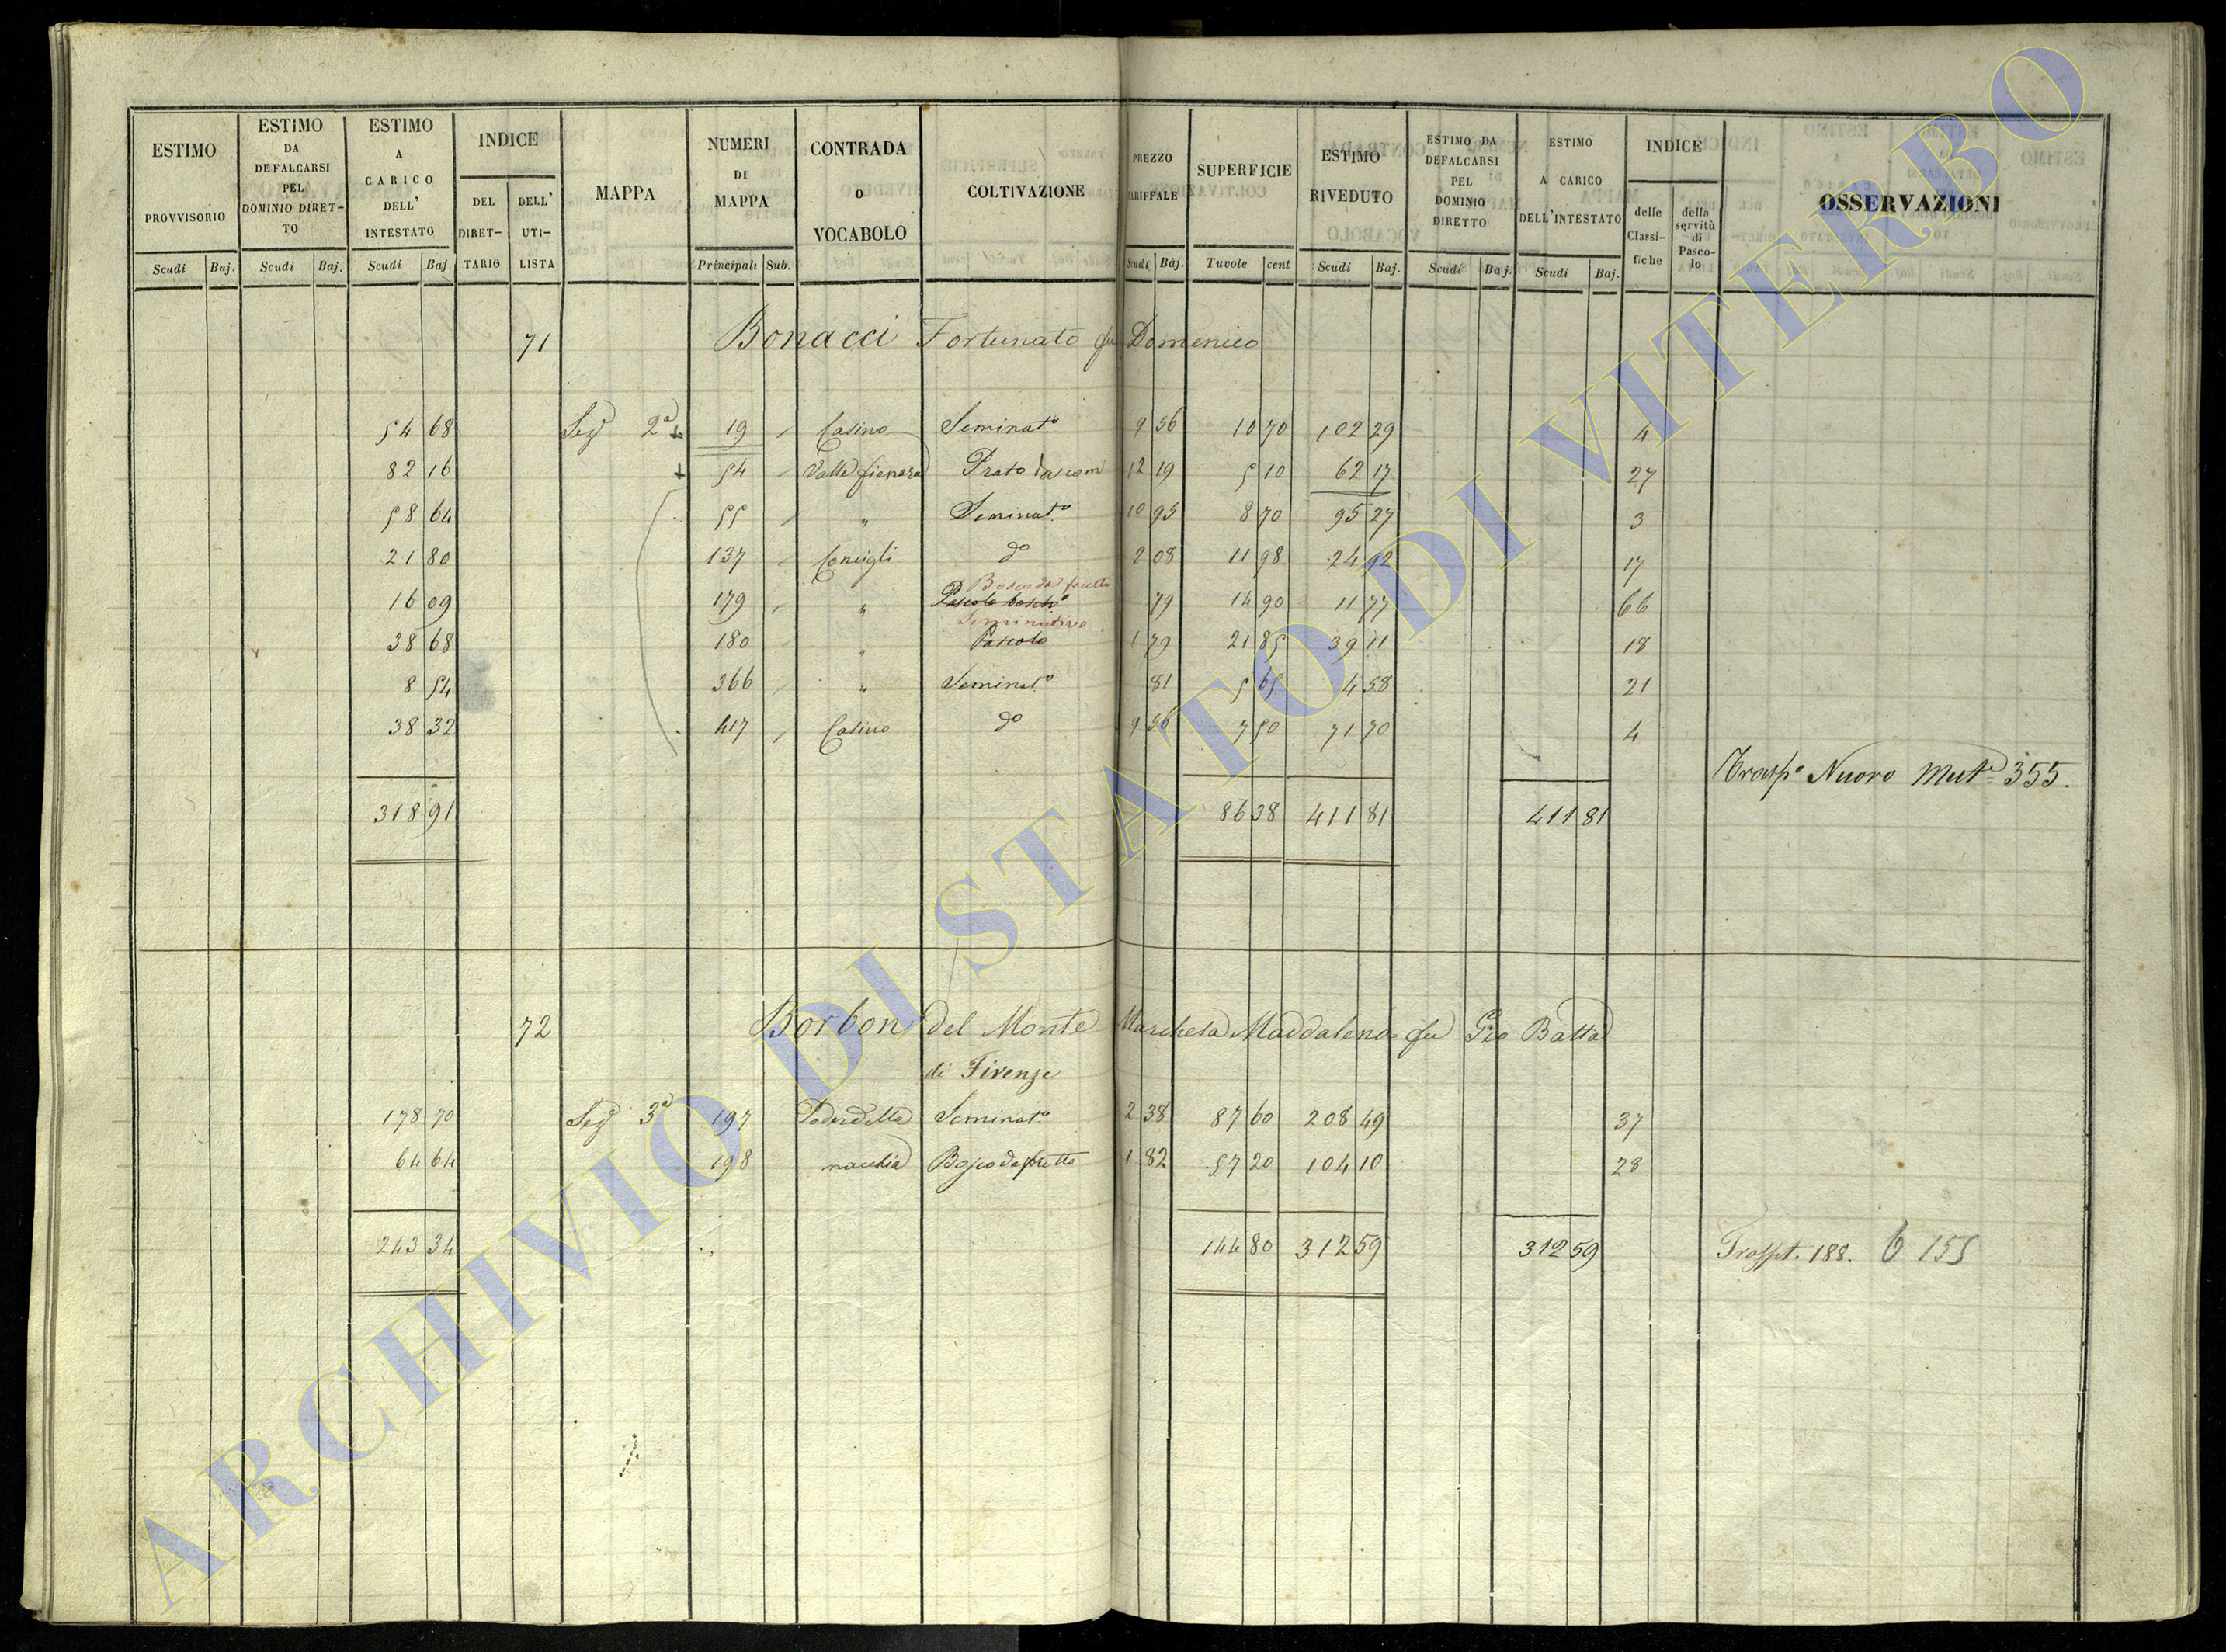 ESTIMO PROVVISORIO
ESTIMO DA DEFALCARSI PEL DOMINIO DIRET-TO
ESTIMO A CARICO DELL' INTESTATO
INDICE
DEL DIRET-TARIO
DELL' UTI-LISTA
MAPPA
NUMERI DI MAPPA
CONTRADA o VOCABOLO
COLTIVAZIONE
PREZZO TARIFFALE
SUPERFICIE
ESTIMO RIVEDUTO
ESTIMO DA DEFALCARSI PEL DOMINIO DIRETTO
ESTIMO A CARICO DELL'INTESTATO
INDICE
delle Classi-fiche
della servitù di Pasco-lo
OSSERVAZIONI
Scudi Baj. Scudi Baj. Scudi Baj Principali Sub. Scudi Baj. Tavole cent Scudi Baj. Scudi Baj Scudi Baj.
71 Bonacci Fortunato fu Domenico
54 68 Sez 2a 19 Casino Seminato 9 56 10 70 102 29 4
82 16 54 Valle Prato 12 19 5 10 62 17 27
58 64 55 " Seminato 10 95 8 70 95 27 3
21 80 137 Conigli do 2 08 11 98 24 92 17
Bosco da frutto
16 09 179 " Pascolo bosco 79 14 90 11 77 66
Seminativo
38 68 180 " Pascolo 1 79 21 85 39 11 18
8 54 366 " Seminato 81 5 65 4 58 21
38 32 417 Casino do 9 56 7 50 71 70 4
Traspo Nuovo Mute 355.
318 91 86 38 411 81 411 81
72 Borbon del Monte Marchesa Maddalena fu Gio Batta
di Firenze
178 70 Sez 3a 197 Poderetta Seminato 2 38 87 60 208 49 37
64 64 198 macchia Bosco da frutto 1 82 57 20 104 10 28
243 34 144 80 312 59 312 59 Traspt. 188. 6 155
ARCHIVIO DI STATO DI VITERBO